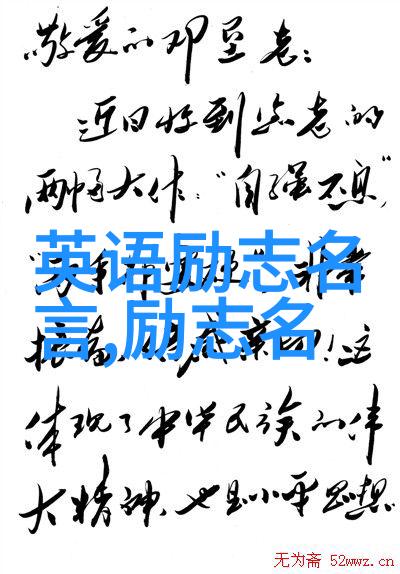 敬爱的邓垦老：
近日收到您老的
两幅大作：“自强不息”
英语励志名
非常
言,励志名
振奋
！这
体现了中华民族的伟
大精神，也是小平思想
无为斋 52wwz.cn